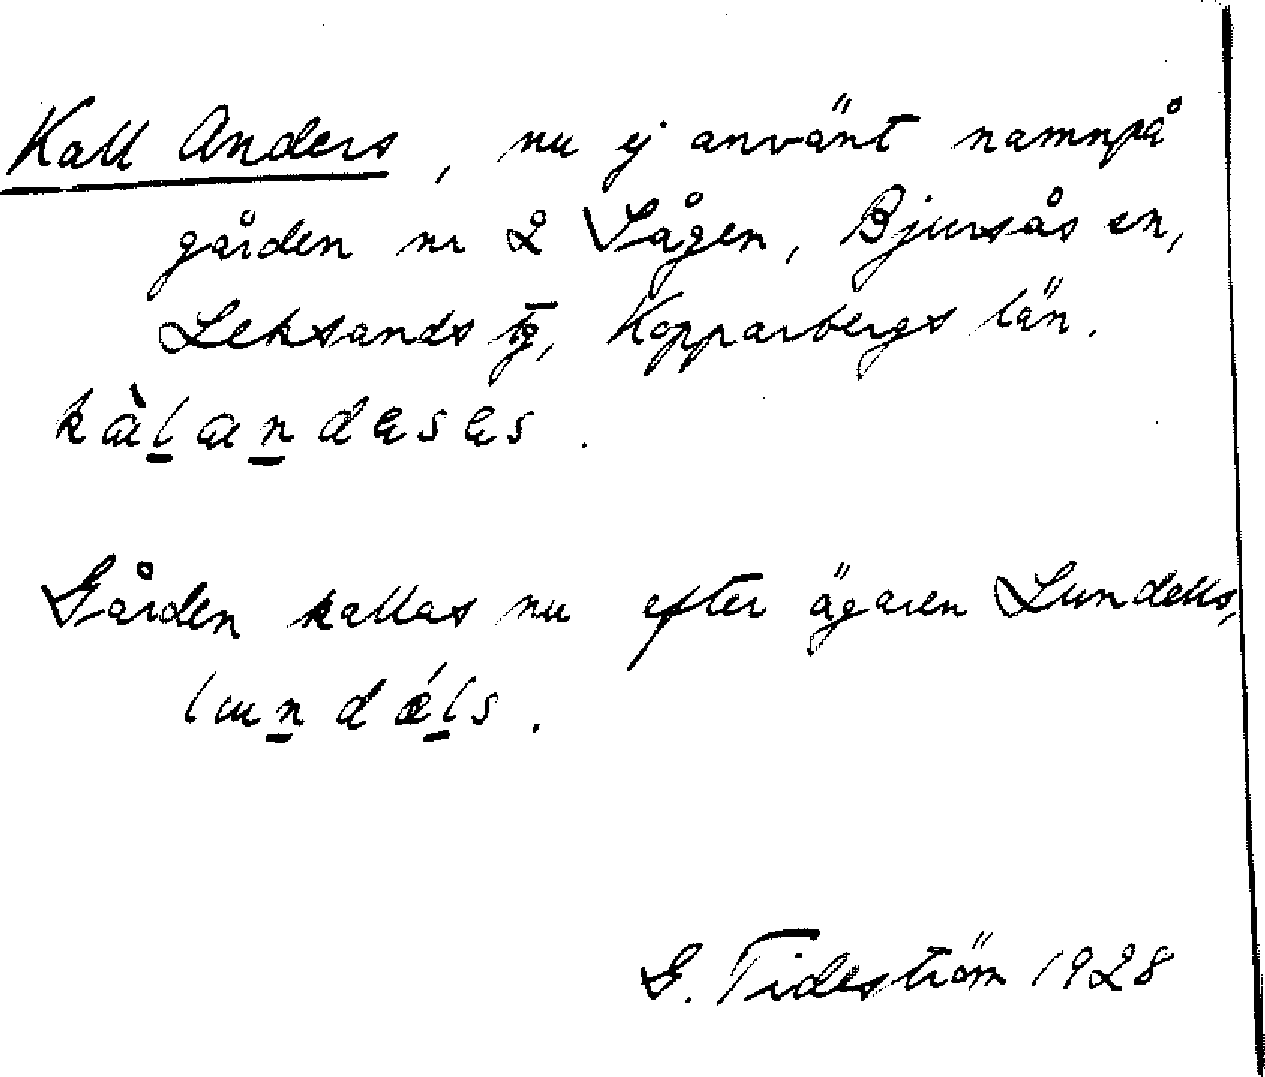 Kall Anders, nu ej använt namn på
gården nr 2 Sågen, Bjursås sn,
Leksands tg, Kopparbergs län.
kàlandəsəs.
Gården kallas nu efter ägaren Lundells,
lundǽls.
G. Tideström 1928